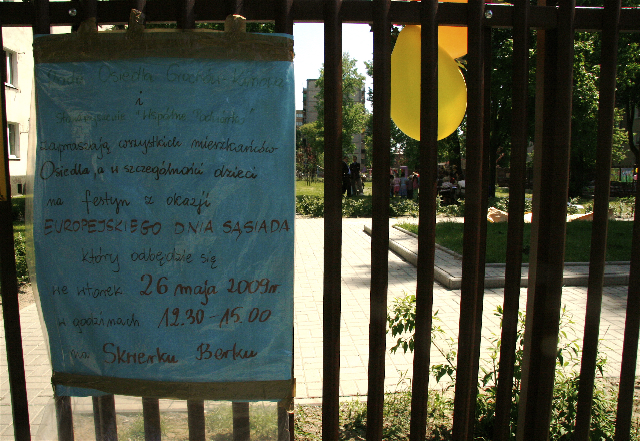 Rada Osiedla
i
Stowarzyszenie "Wspólne Podwórko"
zapraszają wszystkich mieszkańców
Osiedla, a w szczególności dzieci
na festyn z okazji
EUROPEJSKIEGO DNIA SĄSIADA
który odbędzie się
we wtorek 26 maja 2009r
w godzinach 12.30-15.00
na Skwerku Berku